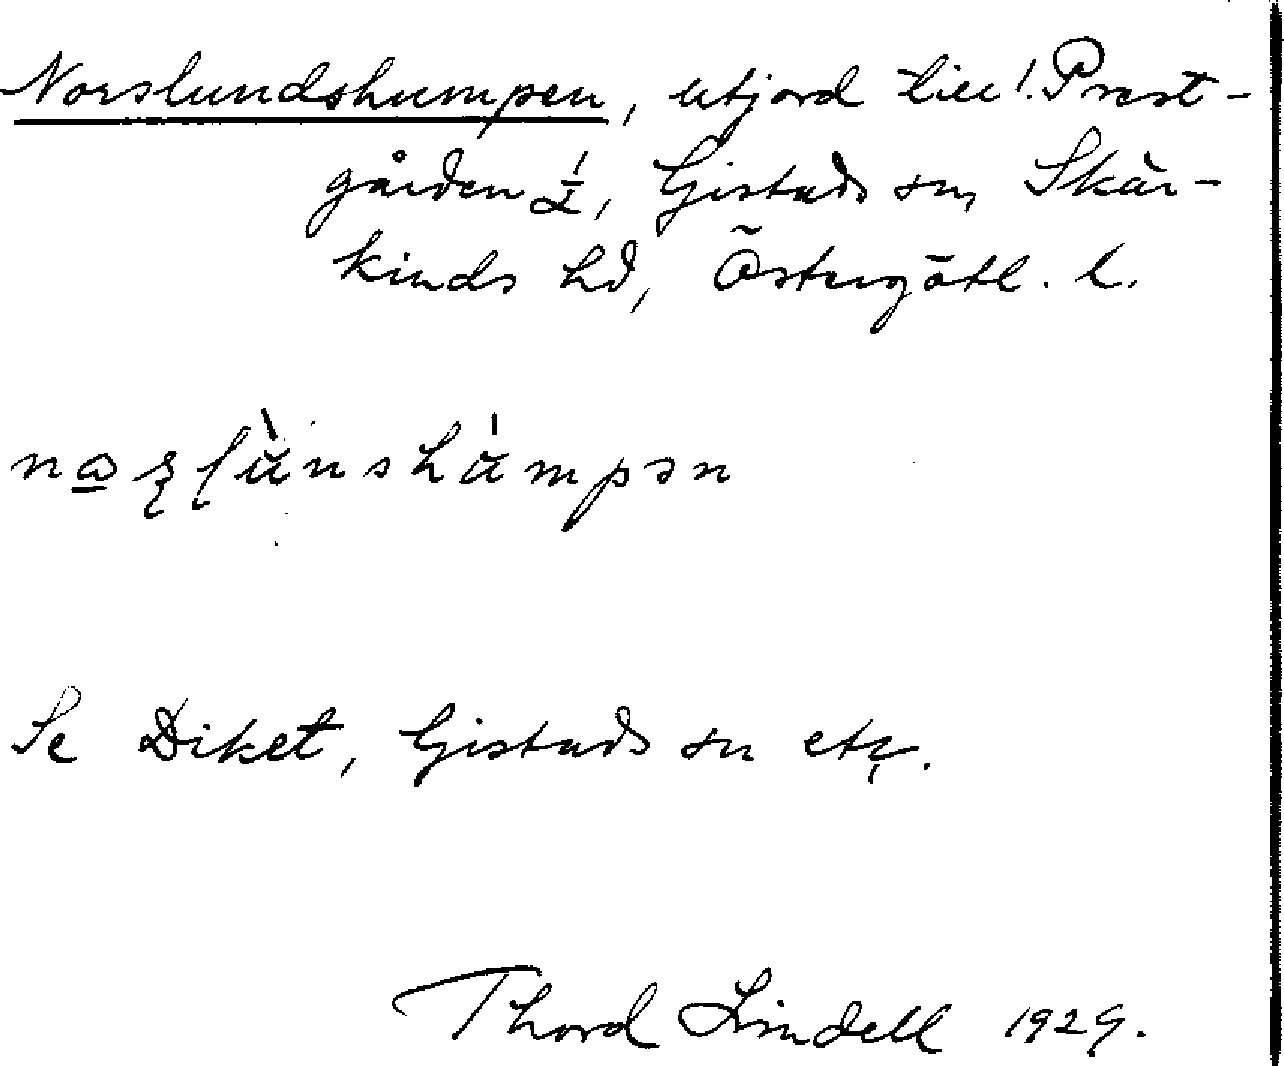 Norslundshumpen, utjord till 1. Prest-
gården 1/2, Gistads sn, Skär-
kinds hd, Östergötl. l.
Se Diket, Gistads sn etc.
Thord Lindell 1929.